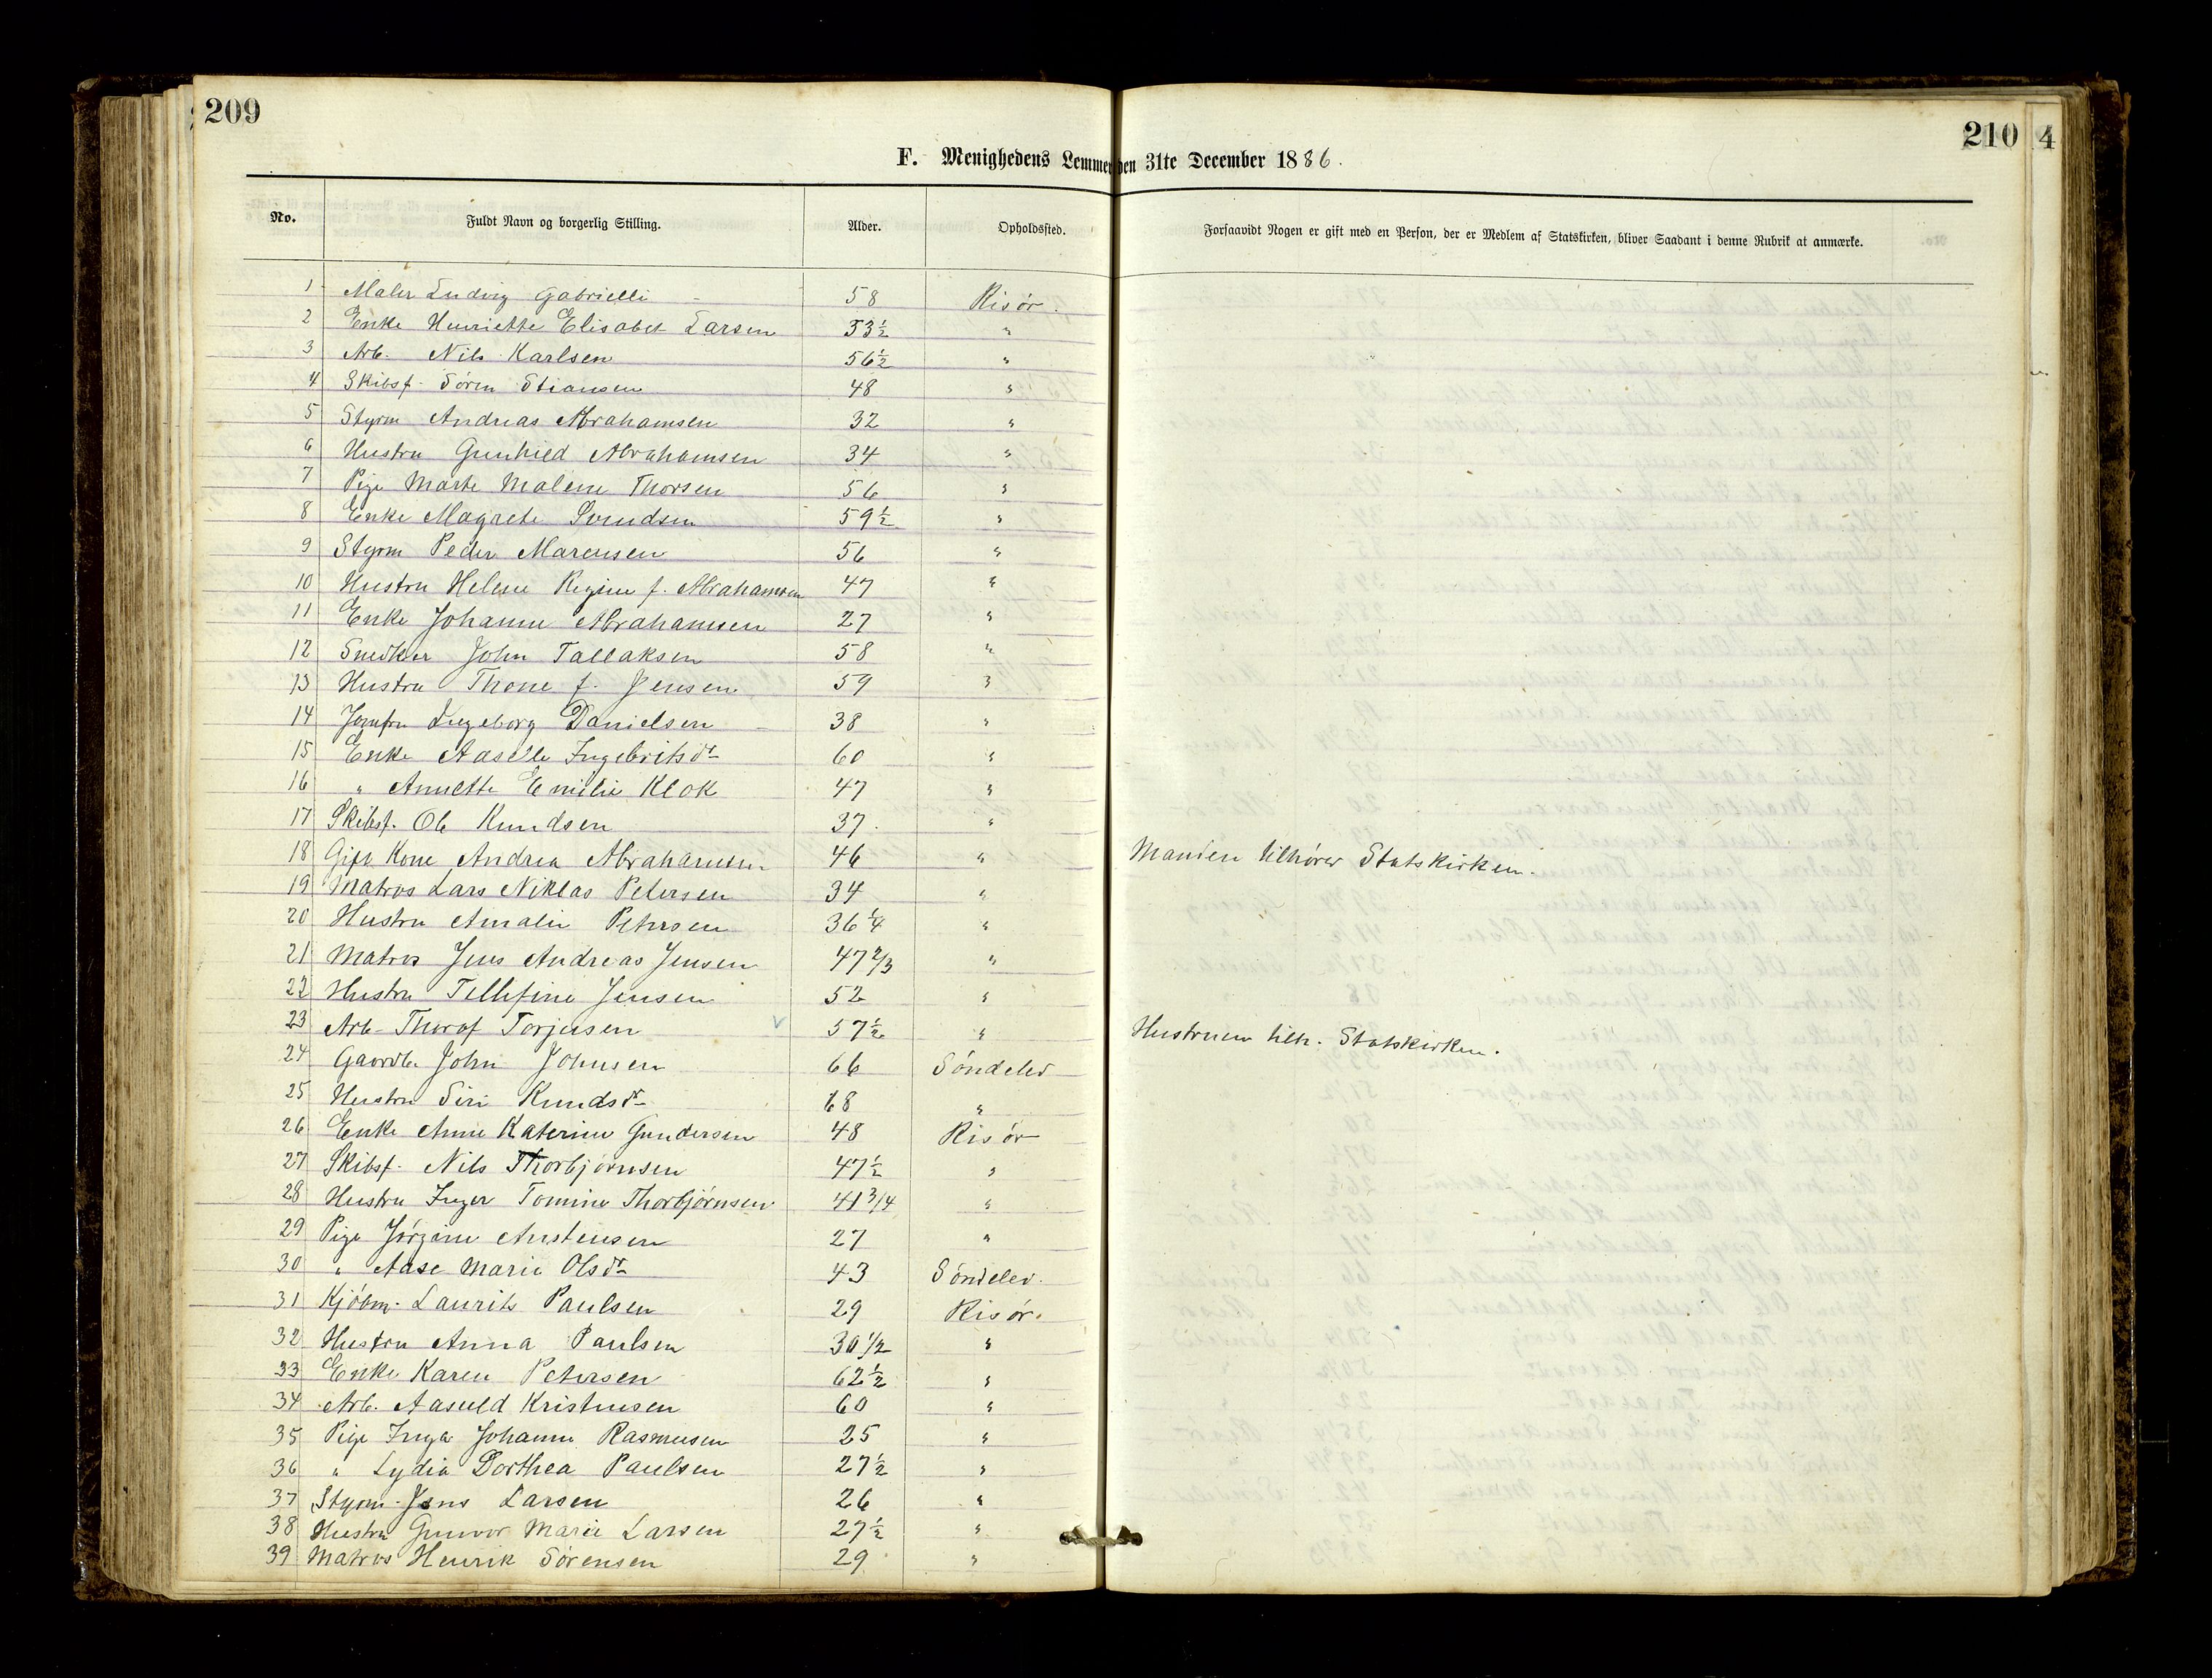 209
210
4
F. Menighedens Lemmer den 31te December 1886.
No. Fuldt Navn og borgerlig Stilling. Alder. Opholdssted. Forsaavidt Nogen er gift med en Person, der er Medlem af Statskirken, bliver Saadant i denne Rubrik at anmærke.
1 Maler Ludvig Gabrielli 58 Risør.
2 Enke Henriette Elisabet Larsen 53½ "
3 Arb. Nils Karlsen 56½ "
4 Skibsf. Søren Stiansen 48 "
5 Styrm Andreas Abrahamsen 32 "
6 Hustru Gunhild Abrahamsen 34 "
7 Pige Marte Malene Thorsen 56 "
8 Enke Magrete Svendsen 59½ "
9 Styrm Peder Marcusen 56 "
10 Hustru Helene Regine f. Abrahamsen 47 "
11 Enke Johanne Abrahamsen 27 "
12 Snedker John Tallaksen 58 "
13 Hustru Thone f. Jensen 59 "
14 Jomfru Ingeborg Danielsen 38 "
15 Enke Aaselle Ingebritsdt 60 "
16 " Annette Emilie Klok 47 "
17 Skibsf. Ole Knudsen 37. "
18 Gift Kone Andrea Abrahamsen 46 " Manden tilhører Statskirken.
19 Matros Lars Niklas Petersen 34 "
20 Hustru Amalie Petersen 36¼ "
21 Matros Jens Andreas Jensen 47 2/3 "
22 Hustru Tellefine Jensen 52 "
23 Arb. Thorof Torjusen 57½ " Hustruen tilh. Statskirken.
24 Gaardb. John Johnsen 66 Søndelev
25 Hustru Siri Knudsdt 68 "
26 Enke Anne Katerine Gundersen 48 Risør
27 Skibsf. Nils Thorbjørnsen 47½ "
28 Hustru Inger Tomine Thorbjørnsen 41 3/4 "
29 Pige Jørgine Anstensen 27 "
30 " Aase Marie Olsdt 43 Søndelev.
31 Kjøbm. Laurits Paulsen 29 Risør.
32 Hustru Anna Paulsen 30 1/2 "
33 Enke Karen Petersen 62½ "
34 Arb. Aasuld Kristensen 60 "
35 Pige Inga Johanne Rasmusen 25 "
36 " Lydia Dorthea Paulsen 27½ "
37 Styrm. Jens Larsen 26 "
38 Hustru Gunvor Marie Larsen 27½ "
39 Matros Henrik Sørensen 29 "